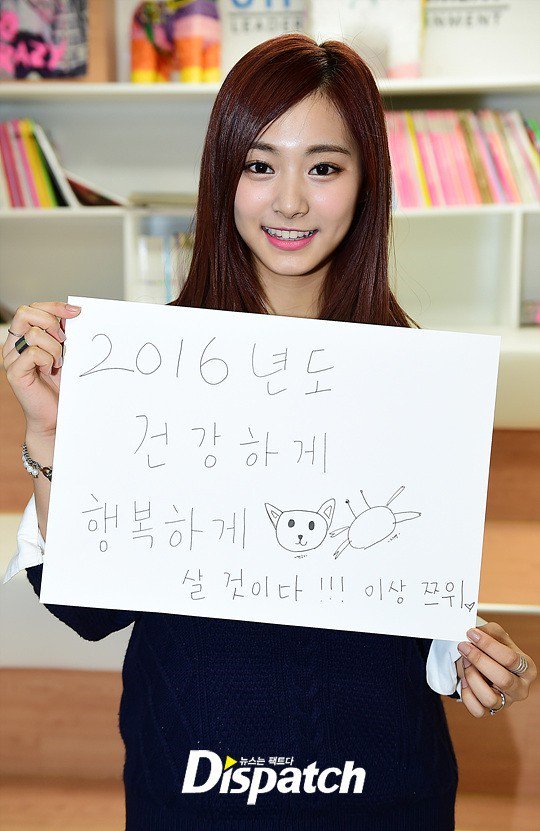 LEADER
NMENT
2016년도
건강하게
행복하게
살 것이다 !!! 이상 쯔위
뉴스는 팩트다
Dispatch